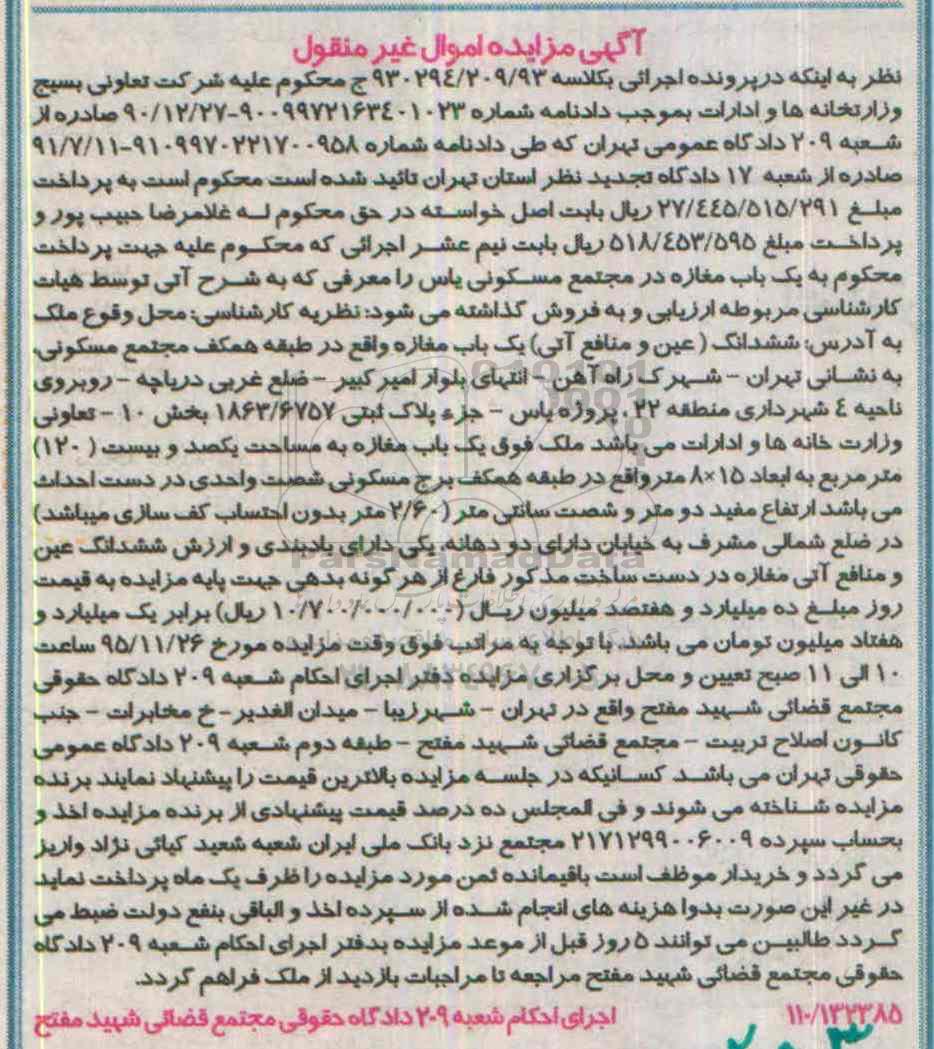 آگهی مزایده اموال غیر منقول
نظر به اینکه در پرونده اجرائی بکلاسه ۹۳۰۲۹٤/۲۰۹/۹۳ ج محکوم علیه شرکت تعاونی بسیج
وزارتخانه ها و ادارات بموجب دادنامه شماره ۹۰۰۹۹۷۲۱۶۳٤۰۱۰۲۳-۹۰/۱۲/۲۷ صادره از
شعبه ۲۰۹ دادگاه عمومی تهران که طی دادنامه شماره ۹۱۰۹۹۷۰۲۲۱۷۰۰۹۵۸-۹۱/۷/۱۱
صادره از شعبه ۱۷ دادگاه تجدید نظر استان تهران تائید شده است محکوم است به پرداخت
مبلغ ۲۷/٤٤۵/۵۱۵/۲۹۱ ریال بابت اصل خواسته در حق محکوم له غلامرضا حبیب پور و
پرداخت مبلغ ۵۱۸/٤۵۳/۵۹۵ ریال بابت نیم عشر اجرائی که محکوم علیه جهت پرداخت
محکوم به یک باب مغازه در مجتمع مسکونی یاس را معرفی که به شرح آتی توسط هیات
کارشناسی مربوطه ارزیابی و به فروش گذاشته می شود: نظریه کارشناسی: محل وقوع ملک
به آدرس: ششدانگ (عین و منافع آتی) یک باب مغازه واقع در طبقه همکف مجتمع مسکونی،
به نشانی تهران - شهرک راه آهن - انتهای بلوار امیر کبیر - ضلع غربی دریاچه - روبروی
ناحیه ٤ شهرداری منطقه ۲۲، پروژه یاس - جزء پلاک ثبتی ۱۸۶۳/۶۷۵۷ بخش ۱۰ - تعاونی
وزارت خانه ها و ادارات می باشد ملک فوق یک باب مغازه به مساحت یکصد و بیست (۱۲۰)
متر مربع به ابعاد ۱۵×۸ متر واقع در طبقه همکف برج مسکونی شصت واحدی در دست احداث
می باشد ارتفاع مفید دو متر و شصت سانتی متر (۲/۶۰ متر بدون احتساب کف سازی میباشد)
در ضلع شمالی مشرف به خیابان دارای دو دهانه، یکی دارای بادبندی و ارزش ششدانگ عین
و منافع آتی مغازه در دست ساخت مذکور فارغ از هر گونه بدهی جهت پایه مزایده به قیمت
روز مبلغ ده میلیارد و هفتصد میلیون ریال (۱۰/۷۰۰/۰۰۰/۰۰۰ ریال) برابر یک میلیارد و
هفتاد میلیون تومان می باشد، با توجه به مراتب فوق وقت مزایده مورخ ۹۵/۱۱/۲۶ ساعت
۱۰ الی ۱۱ صبح تعیین و محل برگزاری مزایده دفتر اجرای احکام شعبه ۲۰۹ دادگاه حقوقی
مجتمع قضائی شهید مفتح واقع در تهران - شهر زیبا - میدان الغدیر - خ مخابرات - جنب
کانون اصلاح تربیت - مجتمع قضائی شهید مفتح - طبقه دوم شعبه ۲۰۹ دادگاه عمومی
حقوقی تهران می باشد. کسانیکه در جلسه مزایده بالاترین قیمت را پیشنهاد نمایند برنده
مزایده شناخته می شوند و فی المجلس ده درصد قیمت پیشنهادی از برنده مزایده اخذ و
بحساب سپرده ۲۱۷۱۲۹۹۰۰۶۰۰۹ مجتمع نزد بانک ملی ایران شعبه شعید کیائی نژاد واریز
می گردد و خریدار موظف است باقیمانده ثمن مورد مزایده را ظرف یک ماه پرداخت نماید
در غیر این صورت بدوا هزینه های انجام شده از سپرده اخذ و الباقی بنفع دولت ضبط می
گردد طالبین می توانند ۵ روز قبل از موعد مزایده بدفتر اجرای احکام شعبه ۲۰۹ دادگاه
حقوقی مجتمع قضائی شهید مفتح مراجعه تا مراجبات بازدید از ملک فراهم گردد.
۱۱۰/۱۳۲۳۸۵ اجرای احکام شعبه ۲۰۹ دادگاه حقوقی مجتمع قضائی شهید مفتح
ParsNamadData